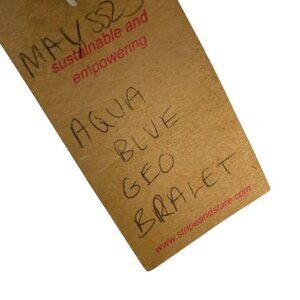 MAY SS23
sustainable and
empowering
AQUA
BLUE
GEO
BRALET
www.stripeandstare.com